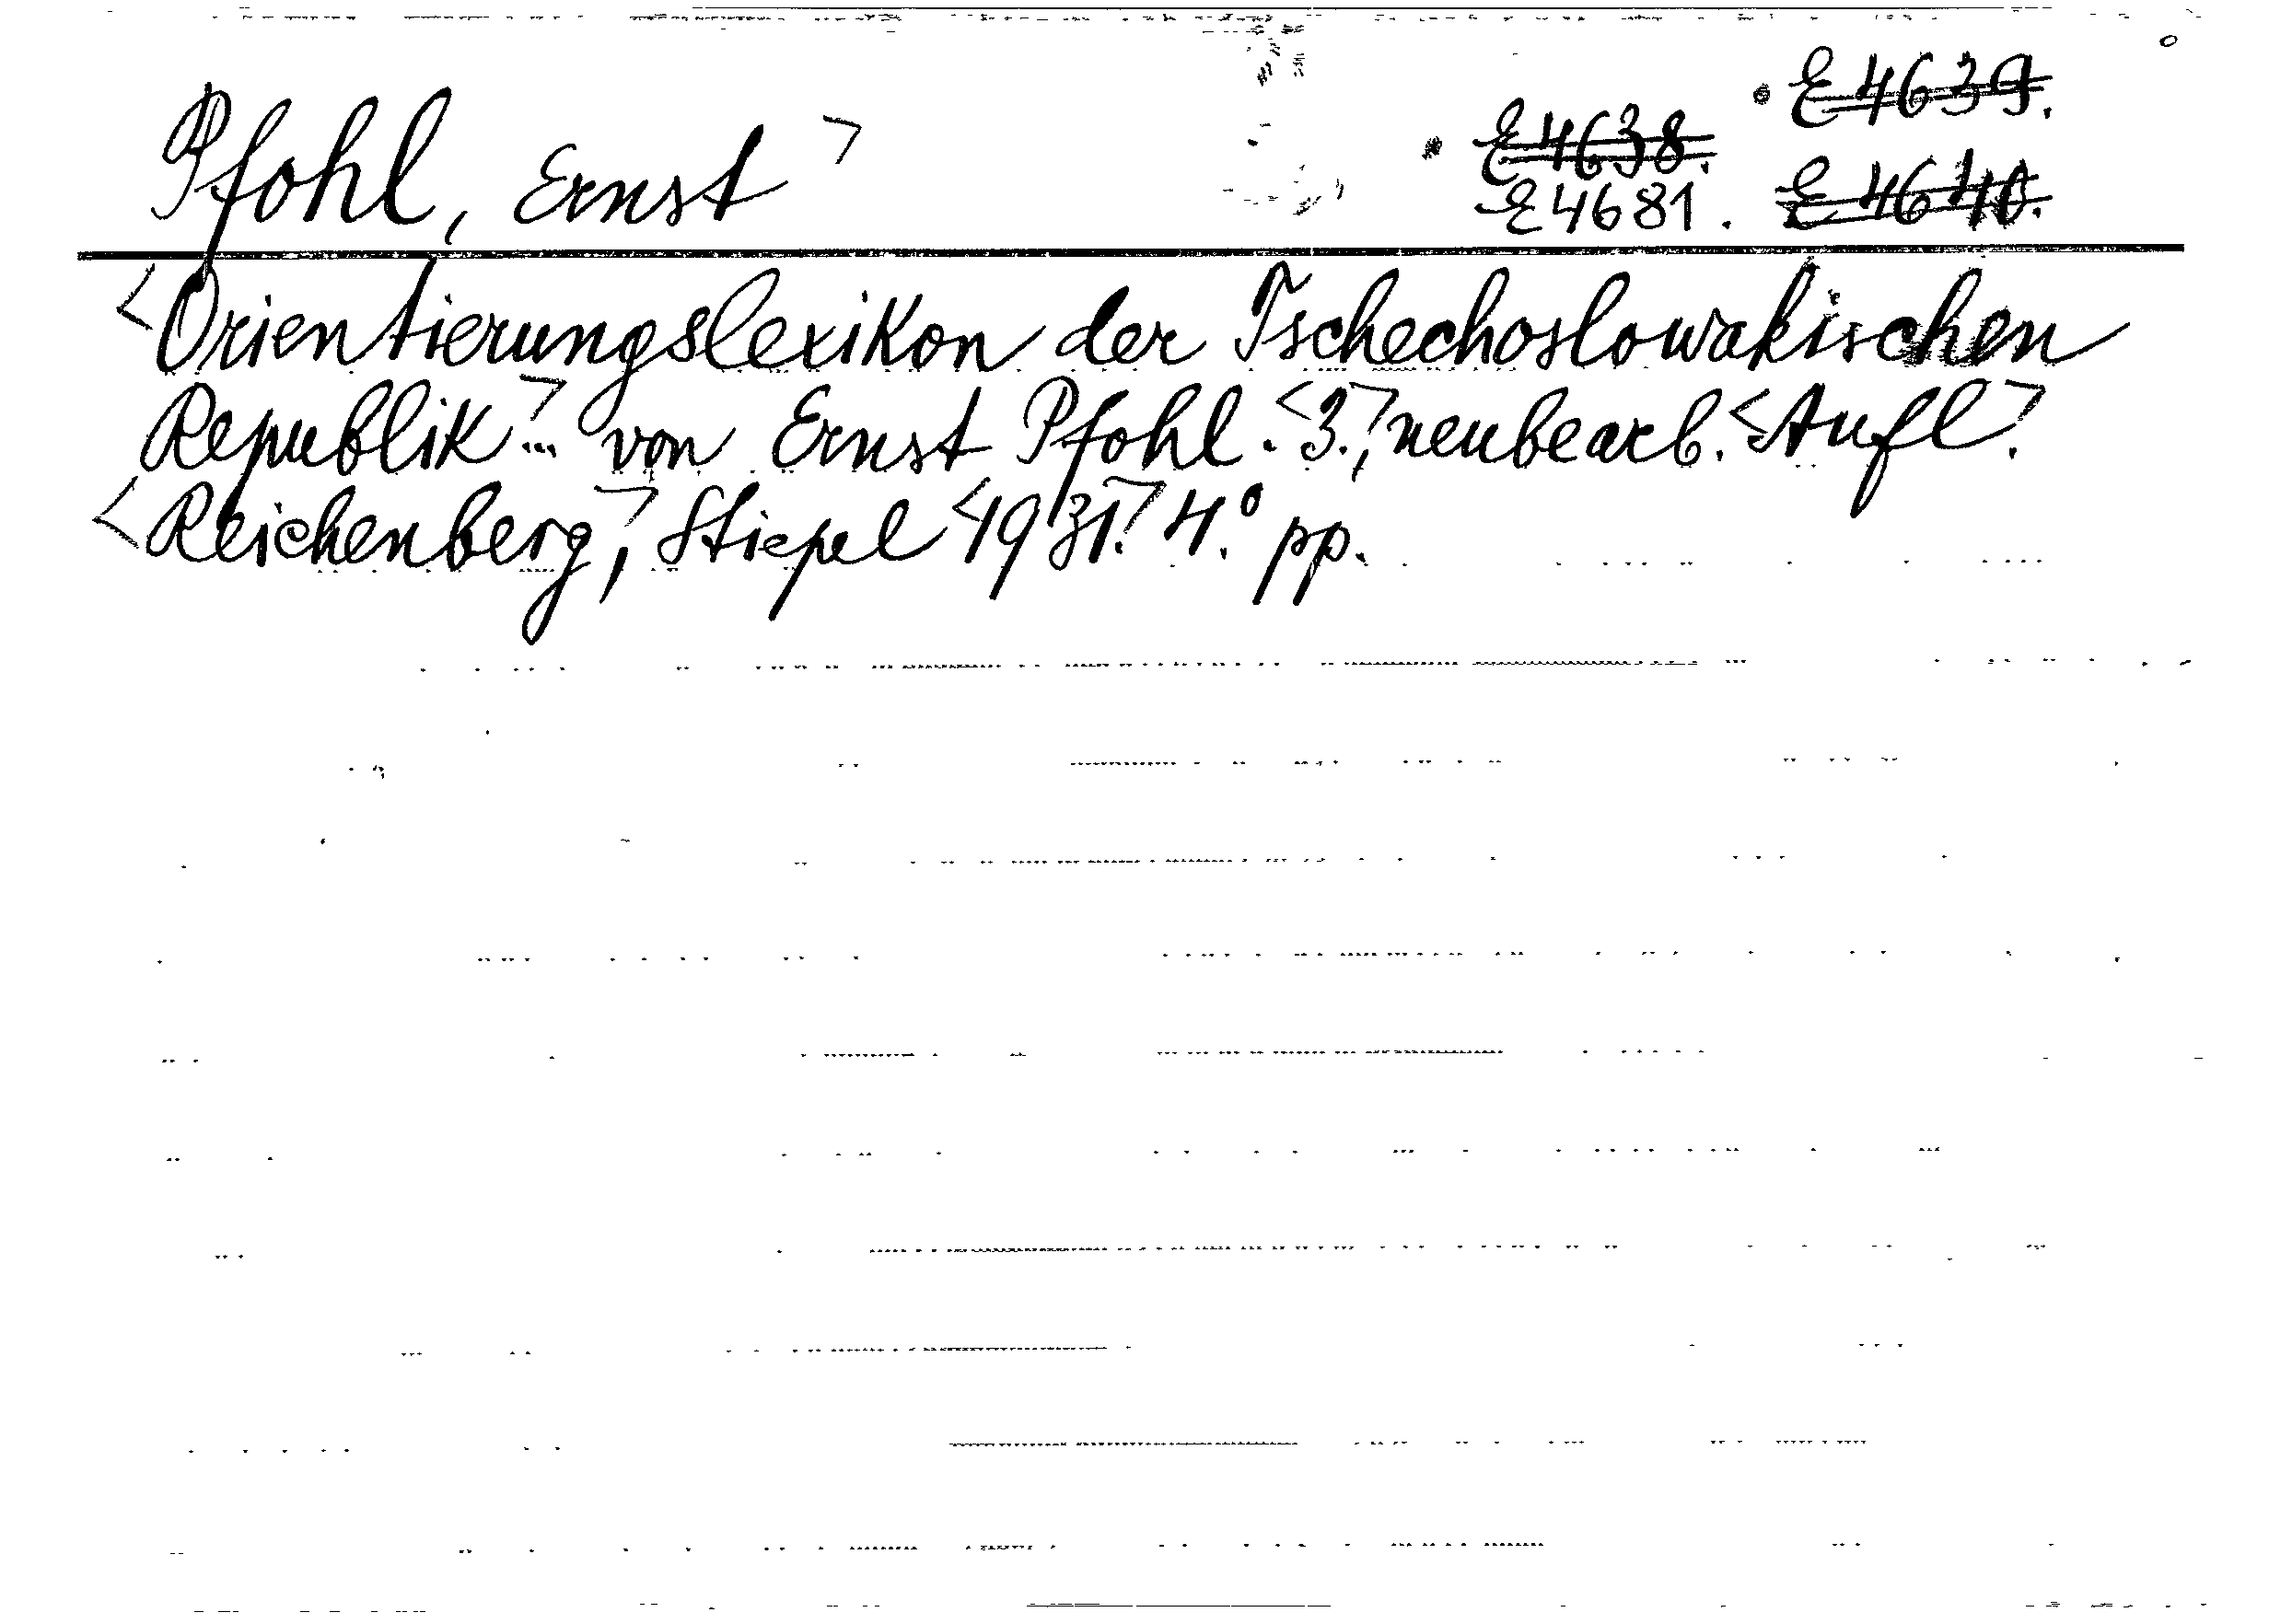 E 4639.
Pfohl, Ernst > E 4638.
E 4681. E 4640.
<Orientierungslexikon der Tschechoslowakischen
Republik> ... von Ernst Pfohl. <3.,> neubearb. <Aufl.>
<Reichenberg>, Stiepel <1931.> 4.° pp.